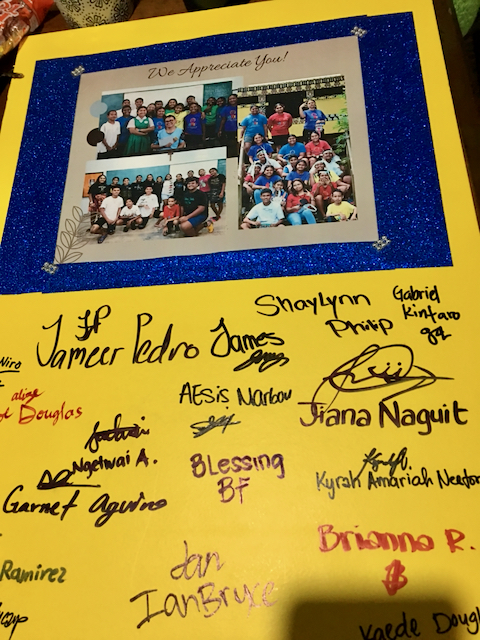 We Appreciate You!
ShayLynn
Philip
Gabriel
Kintaro
JP
Jameer Pedro
James
Niro
aline
Douglas
AEsis Marbou
Jiana Naguit
Ngelwai A.
Blessing
BF
Kyrah Amariah
Garnet Aguino
Brianna R.
B
Ramirez
Jan
IanBryce
Kaede